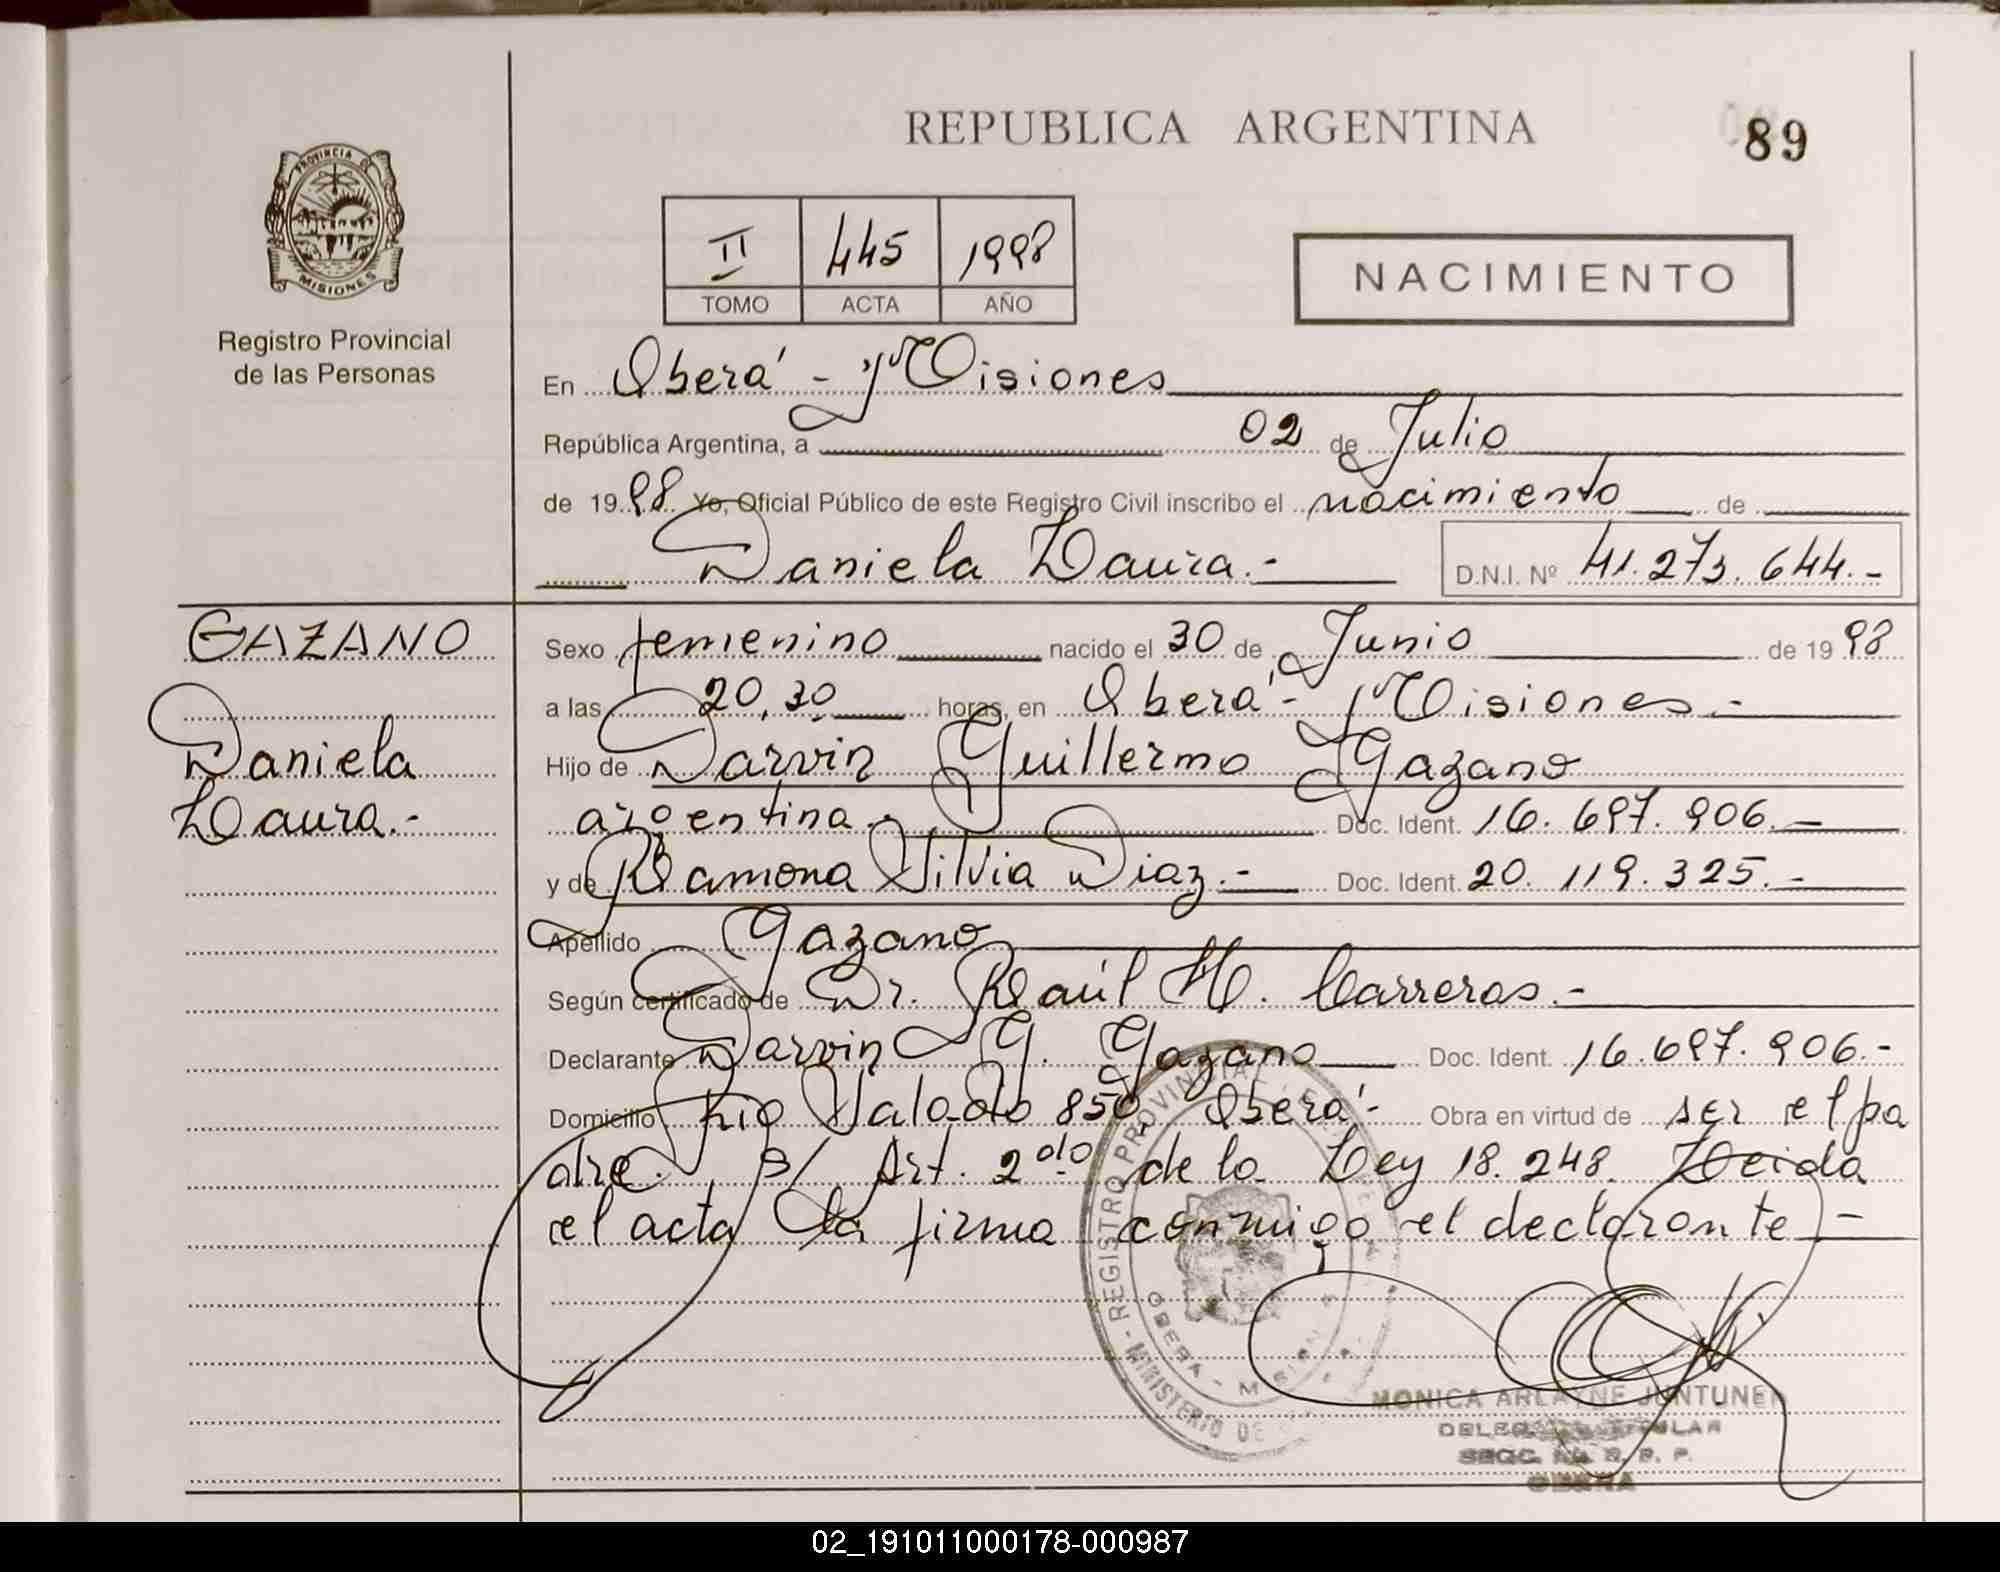 REPUBLICA ARGENTINA
89
PROVINCIA DE
MISIONES
Registro Provincial
de las Personas
II 445 1998
TOMO ACTA AÑO
NACIMIENTO
En Oberá - Misiones
República Argentina, a 02 de Julio
de 1998 Yo, Oficial Público de este Registro Civil inscribo el nacimiento de
Daniela Laura.- D.N.I. Nº 41.273.644.-
GAZANO
Daniela
Laura.-
Sexo femenino nacido el 30 de Junio de 1998
a las 20,30 horas, en Oberá - Misiones.-
Hijo de Darvin Guillermo Gazano
argentina.- Doc. Ident. 16.697.906.-
y de Ramona Silvia Diaz.- Doc. Ident. 20.119.325.-
Apellido Gazano
Según certificado de Dr. Raúl H. Carreras.-
Declarante Darvin G. Gazano Doc. Ident. 16.697.906.-
Domicilio Rio Salado 850, Oberá - Obra en virtud de ser el pa
dre. s/ Art. 2do de la Ley 18.248. Leida
el acta la firma conmigo el declarante -
REGISTRO PROVINCIAL
OBERA - MISIONES
MINISTERIO DE
MONICA ARLAYNE JUNTUNEN
OBERA
02_191011000178-000987